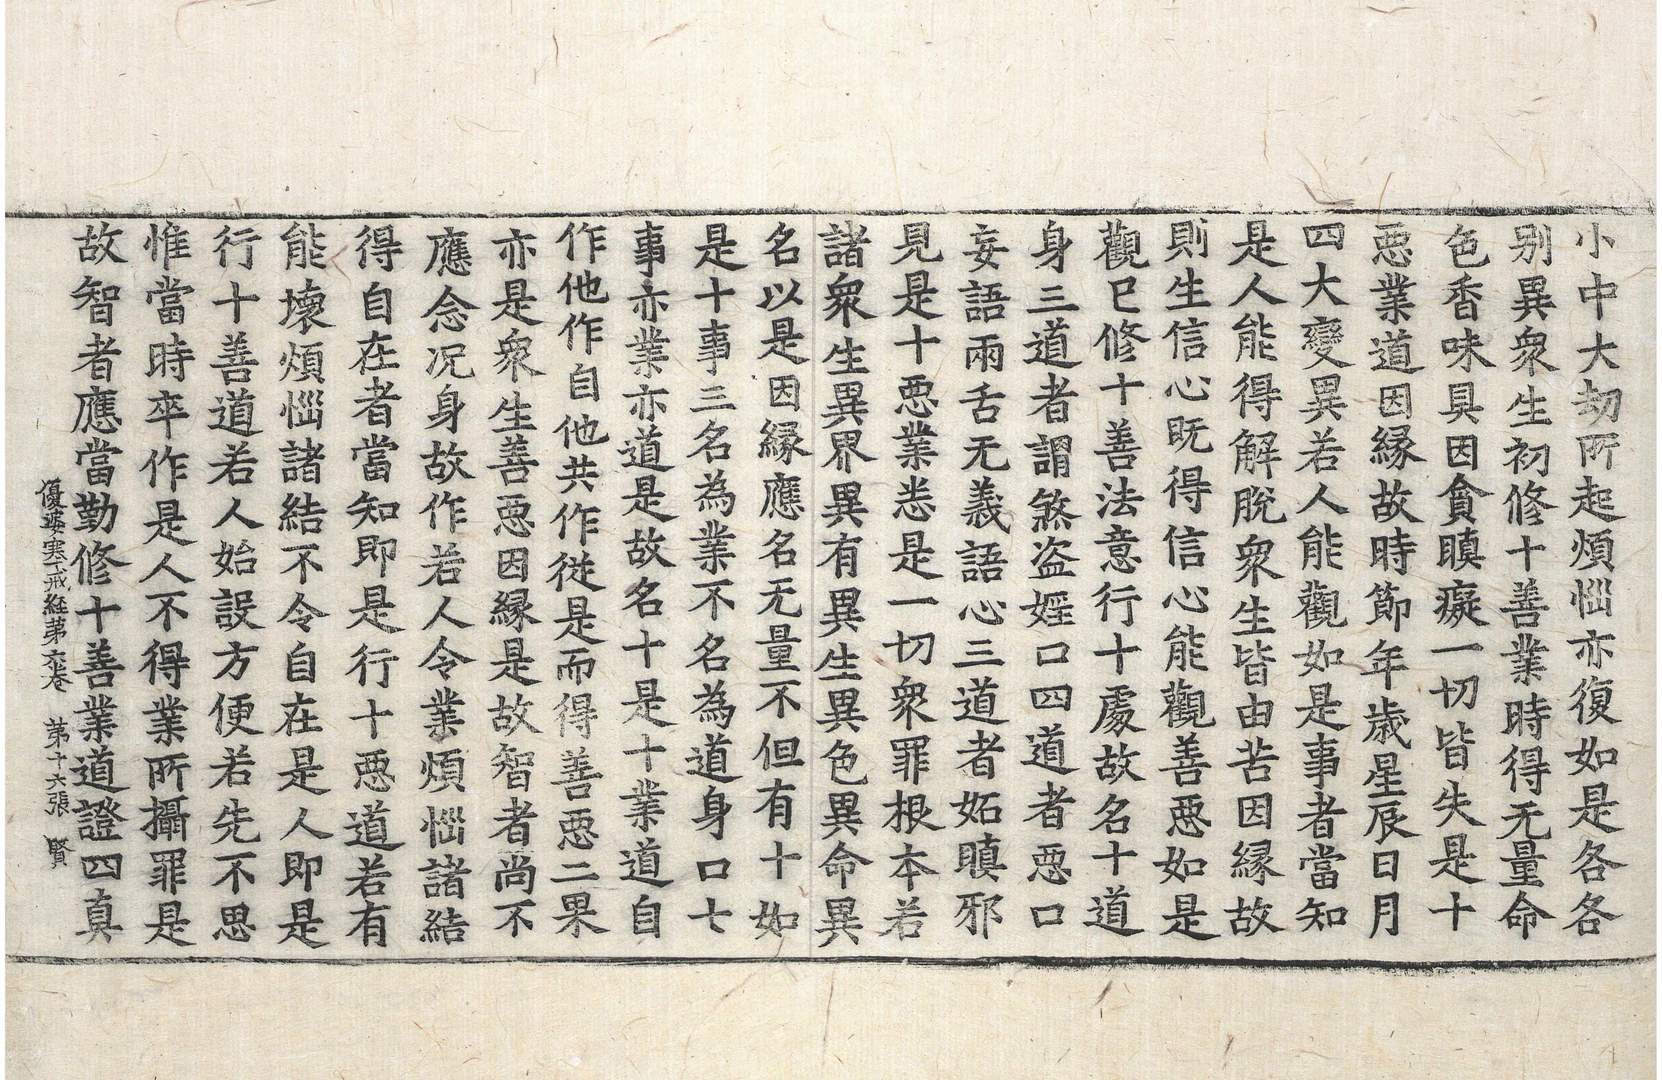 小中大劫所起煩惱亦復如是各各
别異衆生初修十善業時得无量命
色香味具因貪瞋癡一切皆失是十
惡業道因縁故時節年歲星辰日月
四大變異若人能觀如是事者當知
是人能得解脫衆生皆由苦因縁故
則生信心旣得信心能觀善惡如是
觀已修十善法意行十處故名十道
身三道者謂煞盗婬口四道者惡口
妄語兩舌无義語心三道者妬瞋邪
見是十惡業悉是一切衆罪根本若
諸衆生異界異有異生異色異命異
名以是因縁應名无量不但有十如
是十事三名為業不名為道身口七
事亦業亦道是故名十是十業道自
作他作自他共作從是而得善惡二果
亦是衆生善惡因縁是故智者尚不
應念况身故作若人令業煩惱諸結
得自在者當知即是行十惡道若有
能壞煩惱諸結不令自在是人即是
行十善道若人始設方便若先不思
惟當時卒作是人不得業所攝罪是
故智者應當勤修十善業道證四真
優婆塞戒経苐六卷 苐十六張 賢